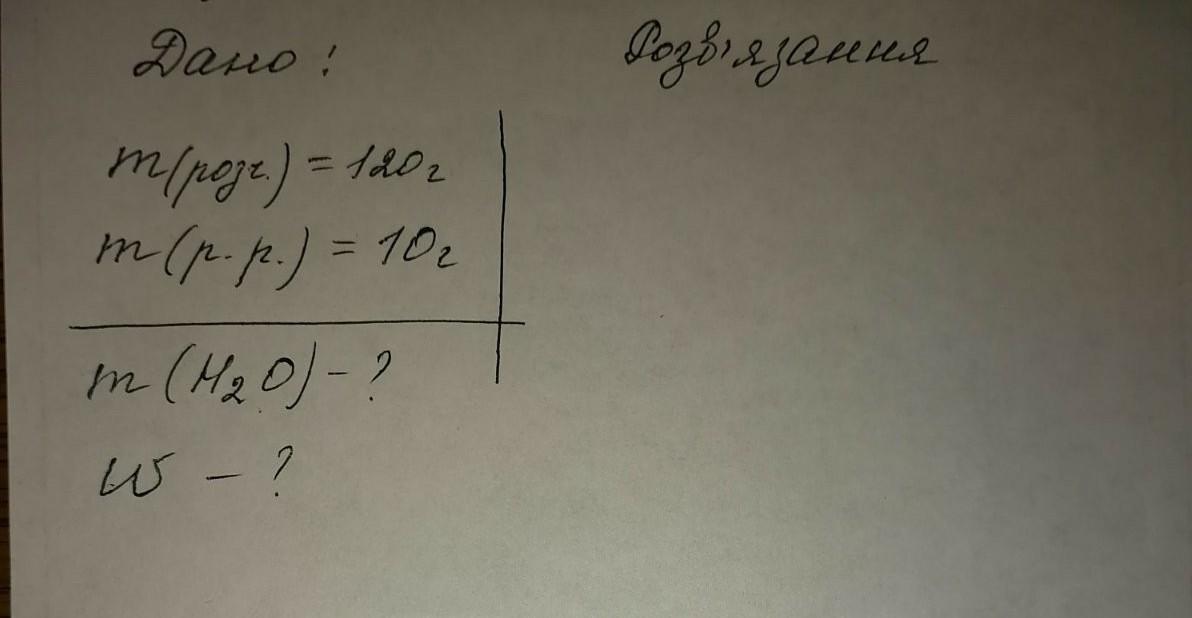 Дано:
Розв'язання
m(розч.) = 120г
m(р.р.) = 10г
m(H₂O) - ?
W - ?